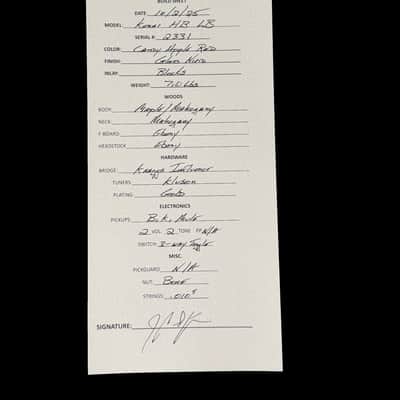 BUILD SHEET
DATE 10/2/25
MODEL: Kauai HB LB
SERIAL #: 2331
COLOR: Candy Apple Red
FINISH: Gloss Nitro
INLAY: Blocks
WEIGHT: lbs
WOODS
BODY: Maple/Mahogany
NECK: Mahogany
F BOARD: Ebony
HEADSTOCK Ebony
HARDWARE
BRIDGE:
TUNERS: Kluson
PLATING: Gold
ELECTRONICS
PICKUPS: B.K. Mule
2 VOL. 2 TONE N/A
SWITCH: 3-way Toggle
MISC.
PICKGUARD: N/A
NUT: Bone
STRINGS: .010s
SIGNATURE: